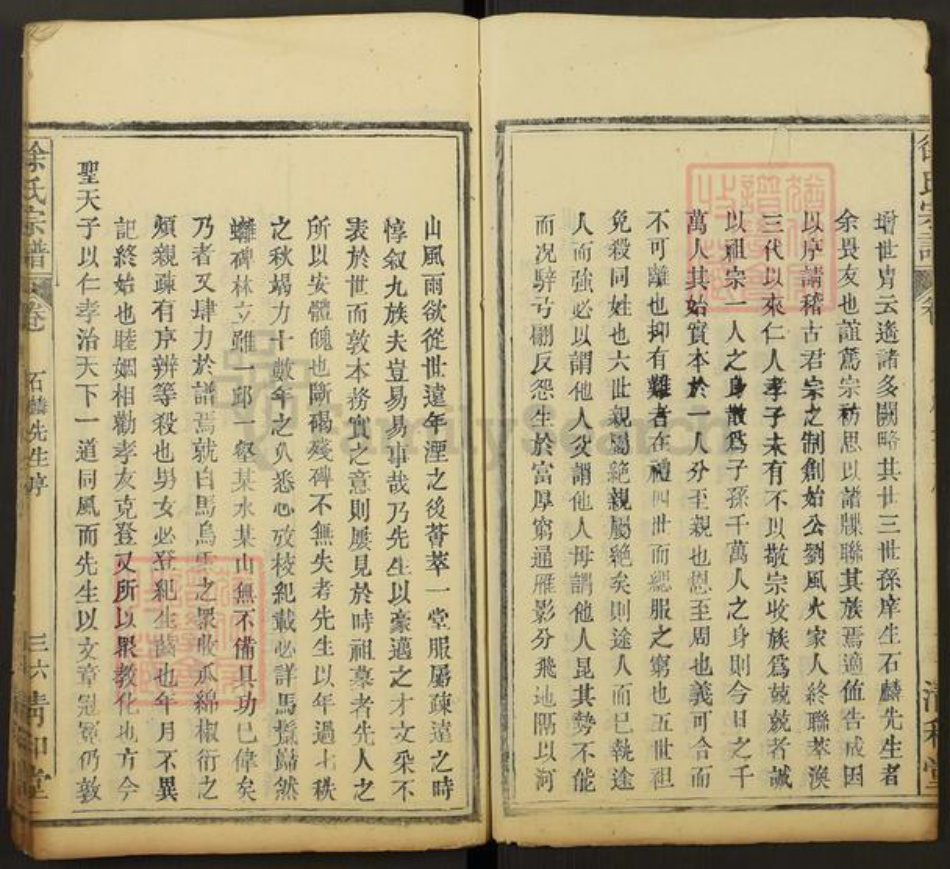 增世胄云遙諸多闕略其廿三世孫庠生石麟先生者
余畏友也誼篤宗祊思以諸牒聯其族焉適值告成因
以序請稽古君宗之制創始公劉風火家人終聯萃渙
三代以來仁人孝子未有不以敬宗收族為兢兢者誠
以祖宗一人之身散為子孫千萬人之身則今日之千
萬人其始實本於一人分至親也恩至周也義可合而
不可離也抑有難者在禮四世而緦服之窮也五世袒
免殺同姓也六世親屬絕親屬絕矣則途人而已執途
人而強必以謂他人父謂他人母謂他人昆其勢不能
而況騂弓翩反怨生於富厚窮通雁影分飛地隔以河
徐氏宗譜
卷
清和堂
山風雨欲從世遠年湮之後薈萃一堂服屬疎遠之時
惇敘九族夫豈易易事哉乃先生以豪邁之才文采不
表於世而敦本務實之意則屢見於時祖墓者先人之
所以安體魄也斷碣殘碑不無失者先生以年過七秩
之秋竭力十數年之久悉心攷核紀載必詳馬鬣巋然
碑林立雖一邱一壑某水某山無不備具功已偉矣
乃者又肆力於譜焉就白馬烏衣之眾收瓜綿椒衍之
頻親疎有序辨等殺也男女必登紀生齒也年月不異
記終始也睦姻相勸孝友克登又所以眾教化也方今
聖天子以仁孝治天下一道同風而先生以文章冠冕仍敦
徐氏宗譜
卷
石麟先生序
三六
清和堂
FamilySearch